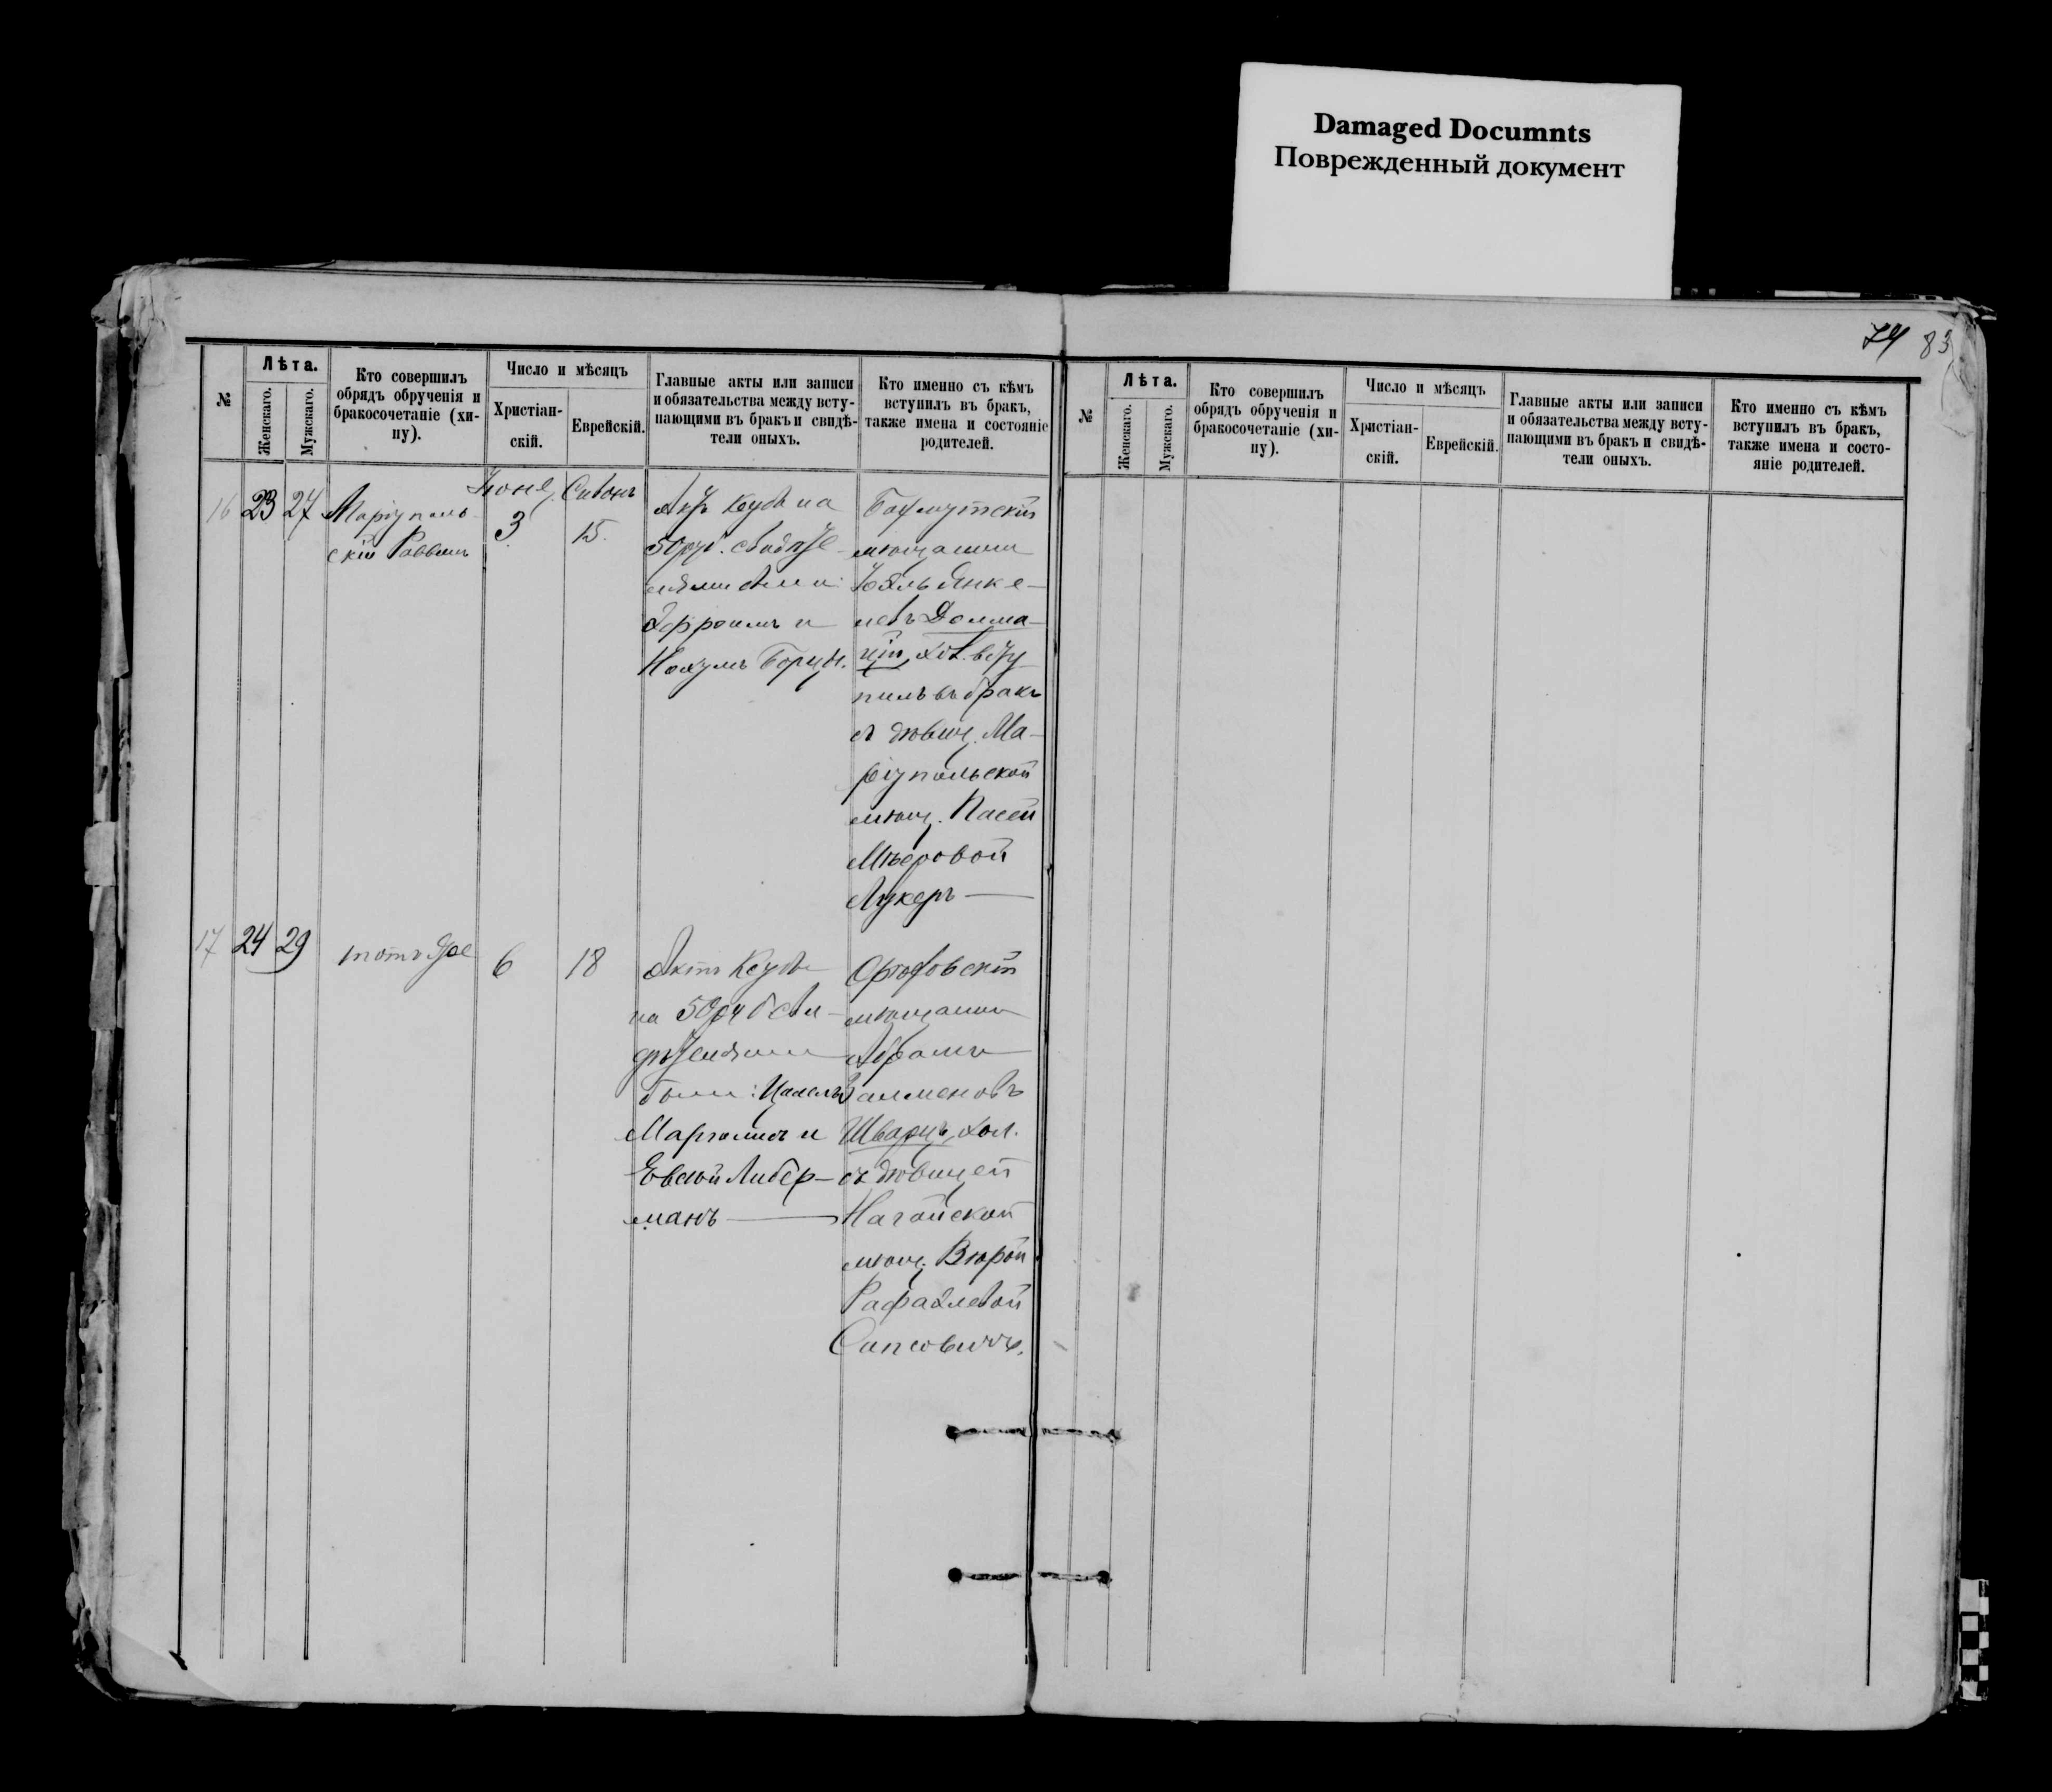 Damaged Documnts
Поврежденный документ
74 83
№
Лѣта.
Женскаго.
Мужскаго.
Кто совершилъ
обрядъ обрученія и
бракосочетаніе (хи-
пу).
Число и мѣсяцъ
Христіан-
скій.
Еврейскій.
Главные акты или записи
и обязательства между всту-
пающими въ бракъ и свидѣ-
тели оныхъ.
Кто именно съ кѣмъ
вступилъ въ бракъ,
также имена и состояніе
родителей.
16
23
27
Маріуполь-
скій Раввинъ
Іюнь
3
Сивонъ
15.
Актъ Кеуба на
50 руб.
Эфроимъ и
Нохумъ
Бахмутскій
мѣщанинъ
Янке-
левъ Долма-
цкій, хол. всту
пилъ въ бракъ
съ дѣвиц. Ма-
ріупольской
мѣщ. Пасей
Мееровой
Лукеръ
17
24
29
тотъ же
6
18
Актъ Кеуба
на 50 руб сви-
дѣтелями
были:
Марголинъ и
Евсей Либер-
манъ
Орѣховскій
мѣщанинъ
Абрамъ
Залменовъ
Шварцъ, хол.
съ дѣвицей
Ногайской
мѣщ. Вѣрой
Рафаэлевой
Сапсовичъ.
№
Лѣта.
Женскаго.
Мужскаго.
Кто совершилъ
обрядъ обрученія и
бракосочетаніе (хи-
пу).
Число и мѣсяцъ
Христіан-
скій.
Еврейскій.
Главные акты или записи
и обязательства между всту-
пающими въ бракъ и свидѣ-
тели оныхъ.
Кто именно съ кѣмъ
вступилъ въ бракъ,
также имена и состо-
яніе родителей.